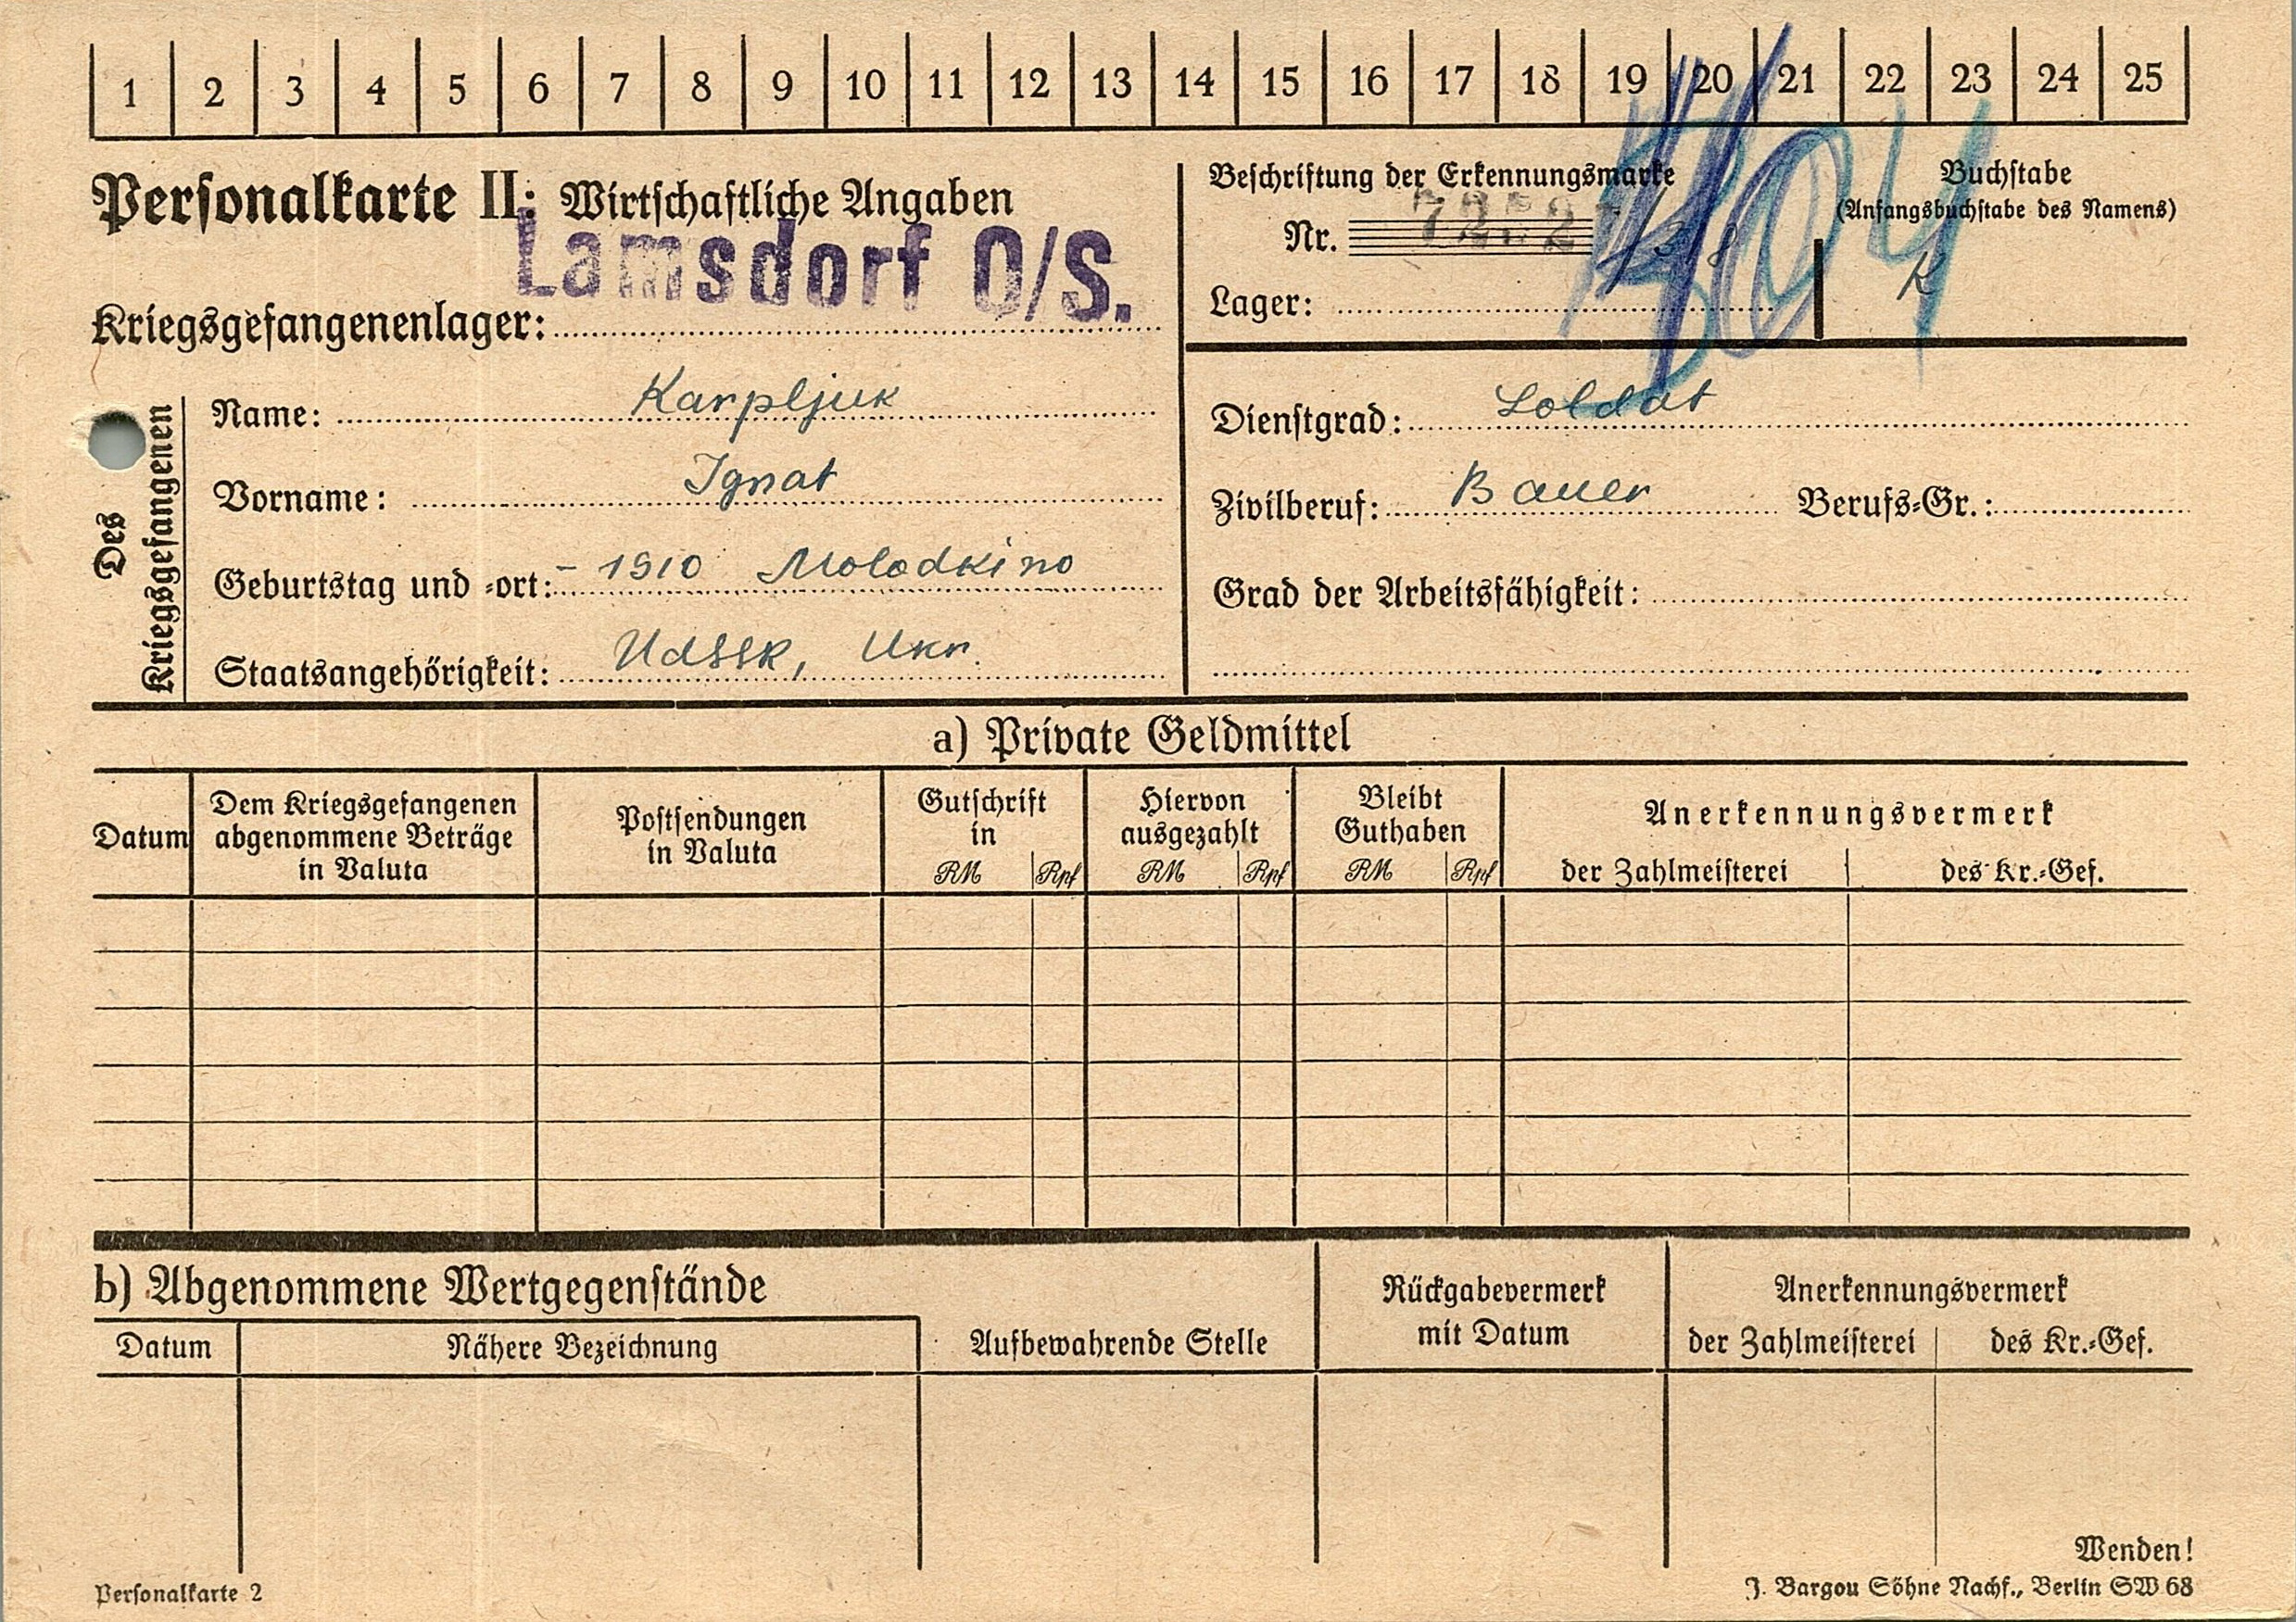 1 2 3 4 5 6 7 8 9 10 11 12 13 14 15 16 17 18 19 20 21 22 23 24 25
Personalkarte II: Wirtschaftliche Angaben
Lamsdorf O/S.
Kriegsgefangenenlager:
Beschriftung der Erkennungsmarke
Nr.
Lager:
Buchstabe
(Anfangsbuchstabe des Namens)
K
Des Kriegsgefangenen
Name: Karpljuk
Vorname: Ignat
Geburtstag und =ort: - 1910 Molodkino
Staatsangehörigkeit: UdSSR, Ukr.
Dienstgrad: Soldat
Zivilberuf: Bauer Berufs=Gr.:
Grad der Arbeitsfähigkeit:
a) Private Geldmittel
Datum
Dem Kriegsgefangenen
abgenommene Beträge
in Valuta
Postsendungen
in Valuta
Gutschrift
in
RM Rpf
Hiervon
ausgezahlt
RM Rpf
Bleibt
Guthaben
RM Rpf
Anerkennungsvermerk
der Zahlmeisterei des Kr.=Gef.
b) Abgenommene Wertgegenstände
Datum Nähere Bezeichnung
Aufbewahrende Stelle
Rückgabevermerk
mit Datum
Anerkennungsvermerk
der Zahlmeisterei des Kr.=Gef.
Wenden!
Personalkarte 2
J. Bargou Söhne Nachf., Berlin SW 68